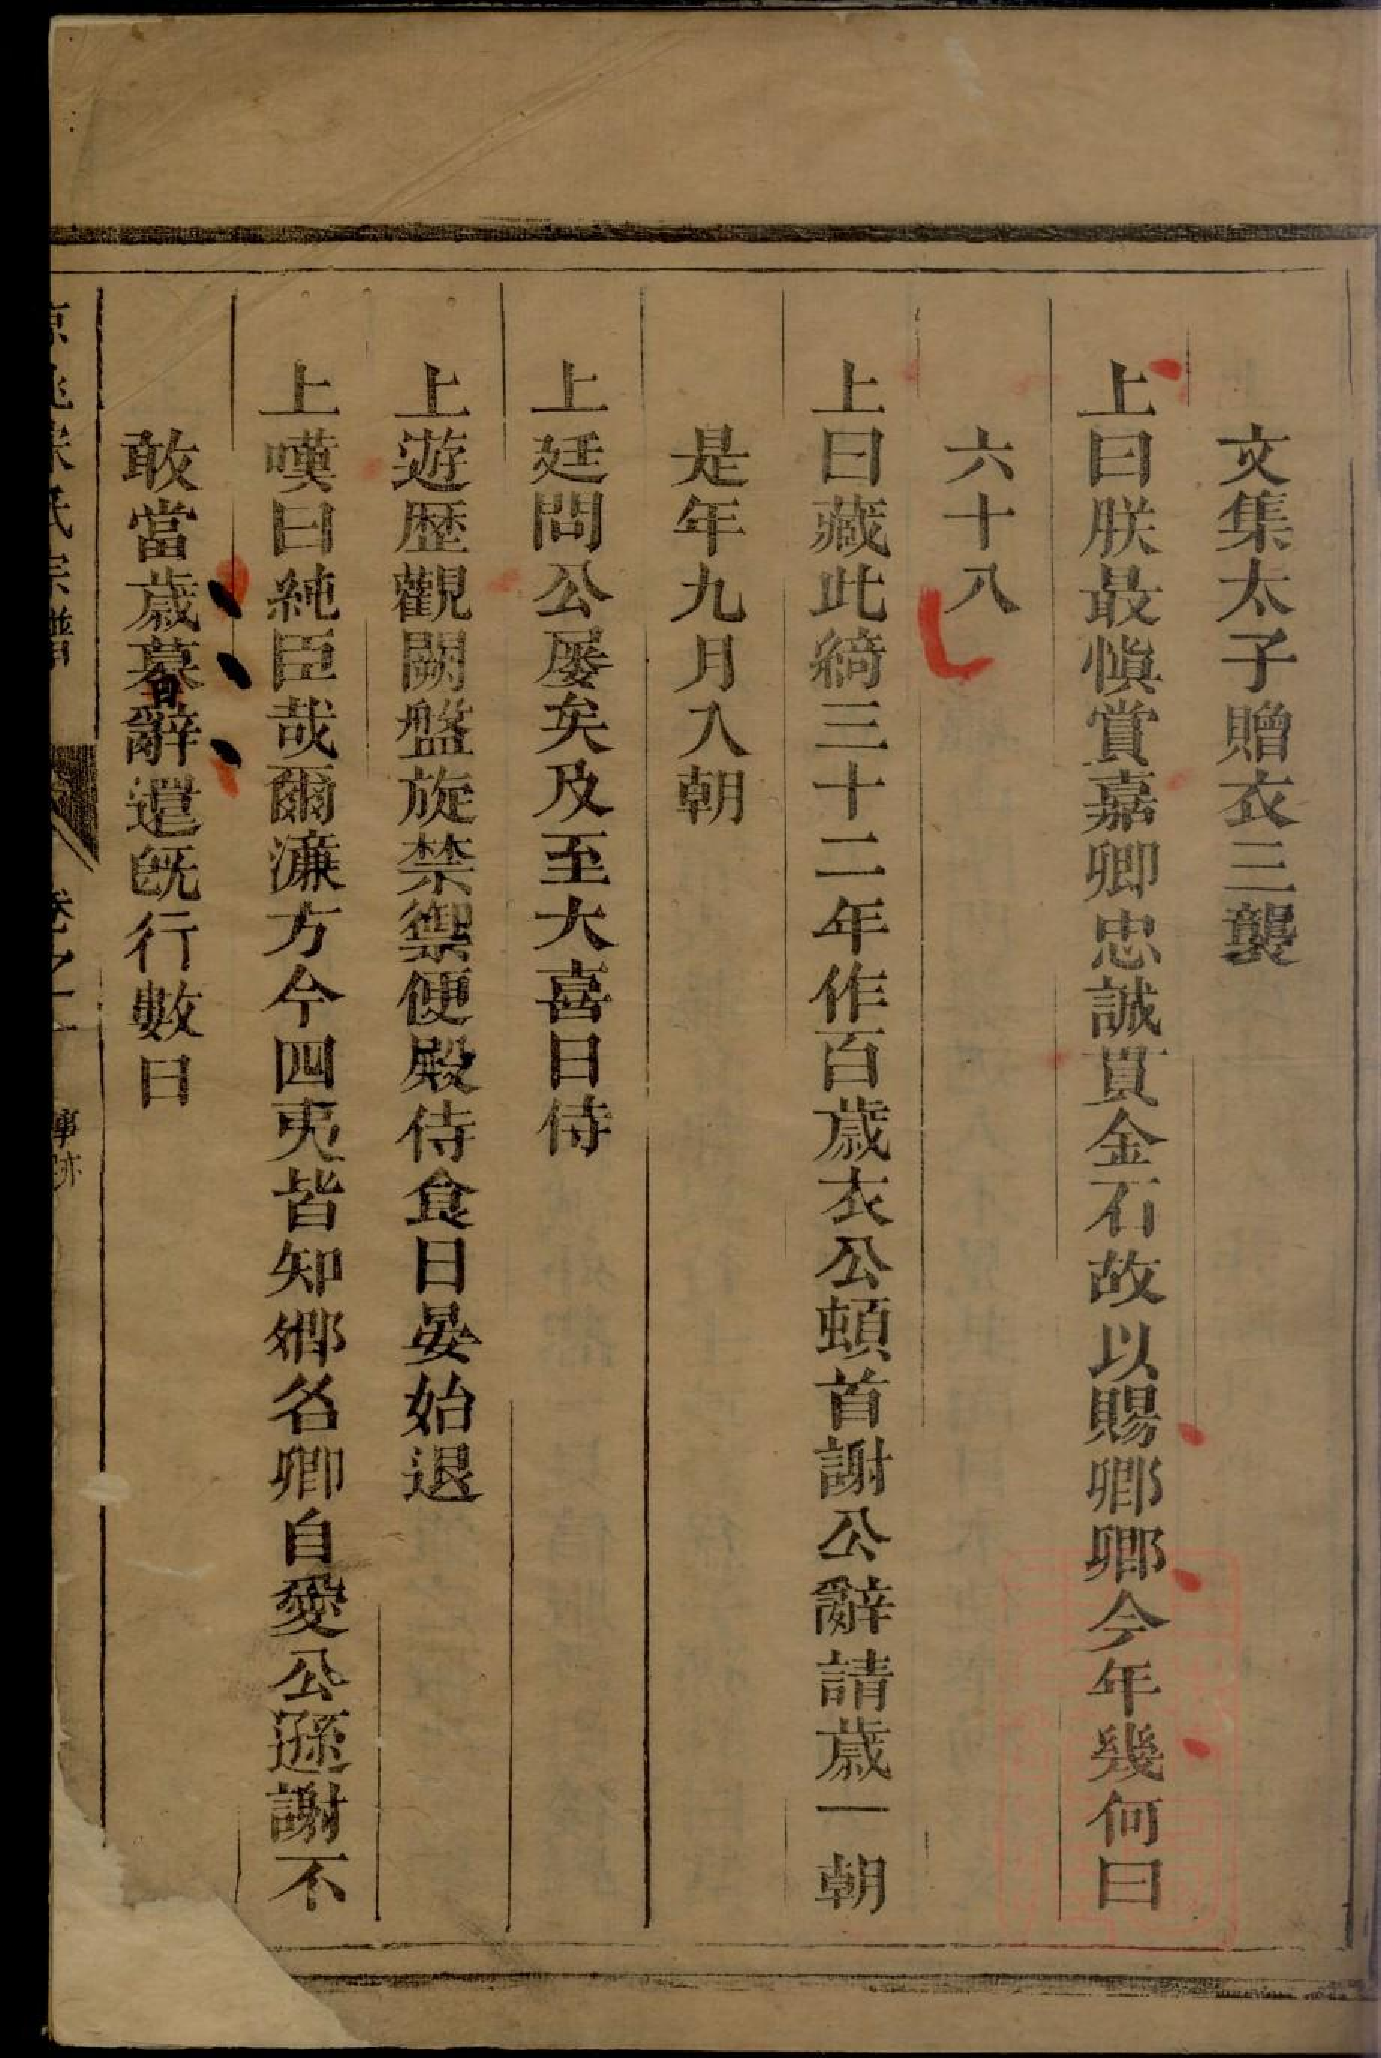 文集太子贈衣三襲
上曰朕最慎賞嘉卿忠誠貫金石故以賜卿卿今年幾何曰
六十八
上曰藏此綺三十二年作百歲衣公頓首謝公辭請歲一朝
是年九月入朝
上廷問公屡矣及至大喜日侍
上遊歴觀闕盤旋禁禦便殿侍食日晏始退
上嘆曰純臣哉爾濂方今四夷皆知卿名卿自愛公遜謝不
敢當歲暮辭還旣行數日
氏宗譜 卷之 事跡